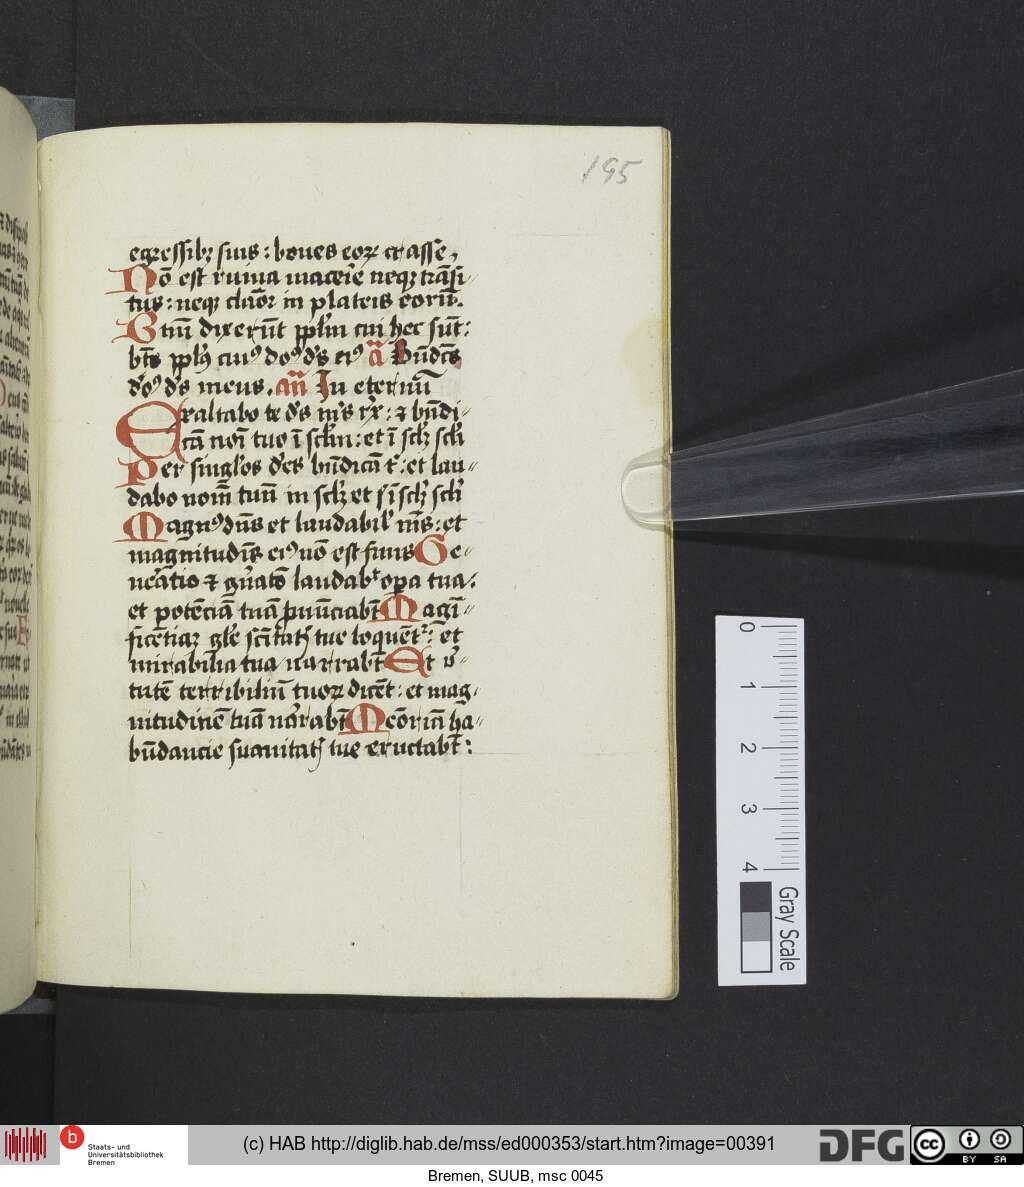 195
egressibꝫ suis : boues eoꝝ crasse,
Nō est ruina macerie neqꝫ trāsi-
tus : neqꝫ clāor in plateis eorū.
Btm̄ dixerūt ppl'm cui hec sūt :
bt̄s ppl's cuiꝰ doꝰ d's eiꝰ a Bn̄dcs
d'oꝰ d's meus . an̄ In eternū
Exaltabo te d's m's rx : ⁊ bn̄di-
cā noı̄ tuo ī sclm : et ī sclꝫ scli
Per singl'os dies bn̄dicā t' : et lau-
dabo nom̄ tuū in sclꝫ et ī sclꝫ scli
Magnꝰ dn̄s et laudabil' nīs : et
magnitudīs eiꝰ nō est finis Ge-
neratio ⁊ gn̄atō laudabt opa tua :
et potēciā tuā pnūciabt Magī-
ficētiaꝫ gl'e scītatꝭ tue loquēt' : et
mirabilia tua narrabt Et v'-
tutē terribiliū tuoꝝ dicēt : et mag-
nitudinē tuā narrabt Meōriā ha-
būdancie suauitatꝭ tue eructabt :
0
1
2
3
4
Gray Scale
b
Staats- und
Universitätsbibliothek
Bremen
(c) HAB http://diglib.hab.de/mss/ed000353/start.htm?image=00391
DFG
cc
BY SA
Bremen, SUUB, msc 0045